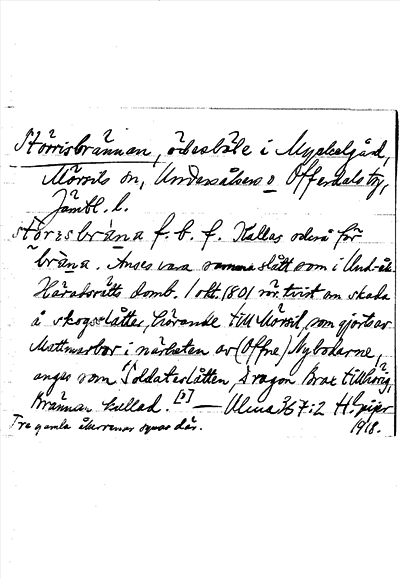 Störrisbrännan, ödesböle i Myckelgård,
Mörsils sn, Undersåkers o Offerdals tg,
Jämtl. l.
störesbräna f. b. f. Kallas också för
bräna. Anses vara samma slått som i Und-åk.
Häradsrätts domb. 1 okt. 1801 rör. tvist om skada
å skogsslåtter, hörande till Mörsil, som gjorts av
Mattmarbor i närheten av (Offne) Nybodarne,
anges som "Soldateslåtten, Dragon Brax tillhörig,
Brännan kallad. — Ulma 367:2 H. Geijer
Tre gamla åkerrenar synas där. 1918.